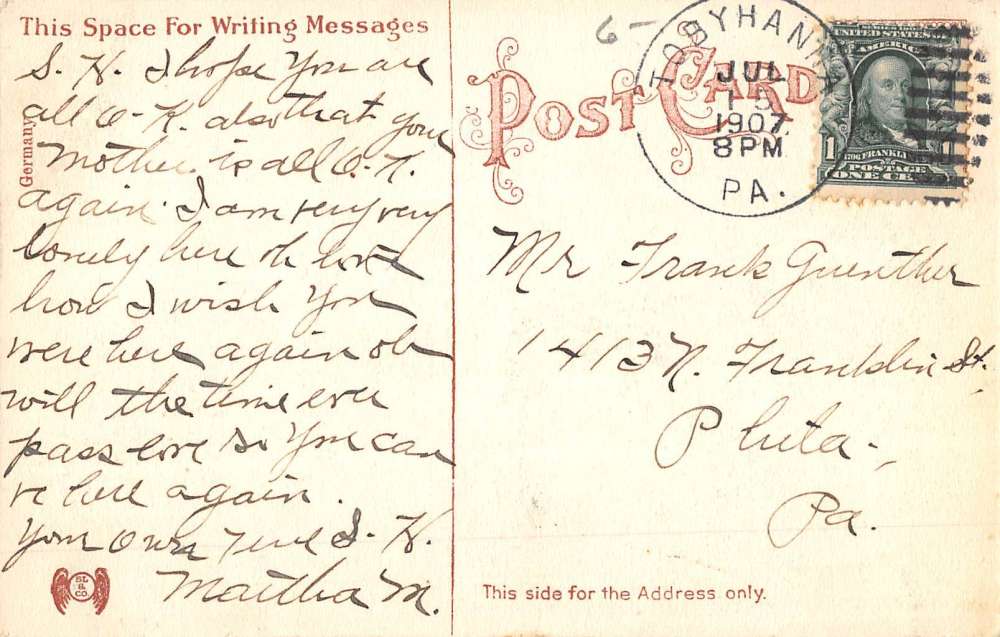 This Space For Writing Messages
S. H. I hope you are
all O-K. also that your
Mother is all O.K.
again. I am very very
lonely here oh love
how I wish you
were here again oh
will the time ever
pass love so you can
re here again.
Your Own True S. H.
Martha M.
Germany
SL & CO.
POST CARD
8
TOBYHANNA
JUL
15
1907
8PM
PA.
UNITED STATES
AMERIC
1
1706 FRANKLIN
POSTAGE
ONE CE
6
Mr Frank Guenther
1413 N. Franklin St.,
Phila.,
Pa.
This side for the Address only.